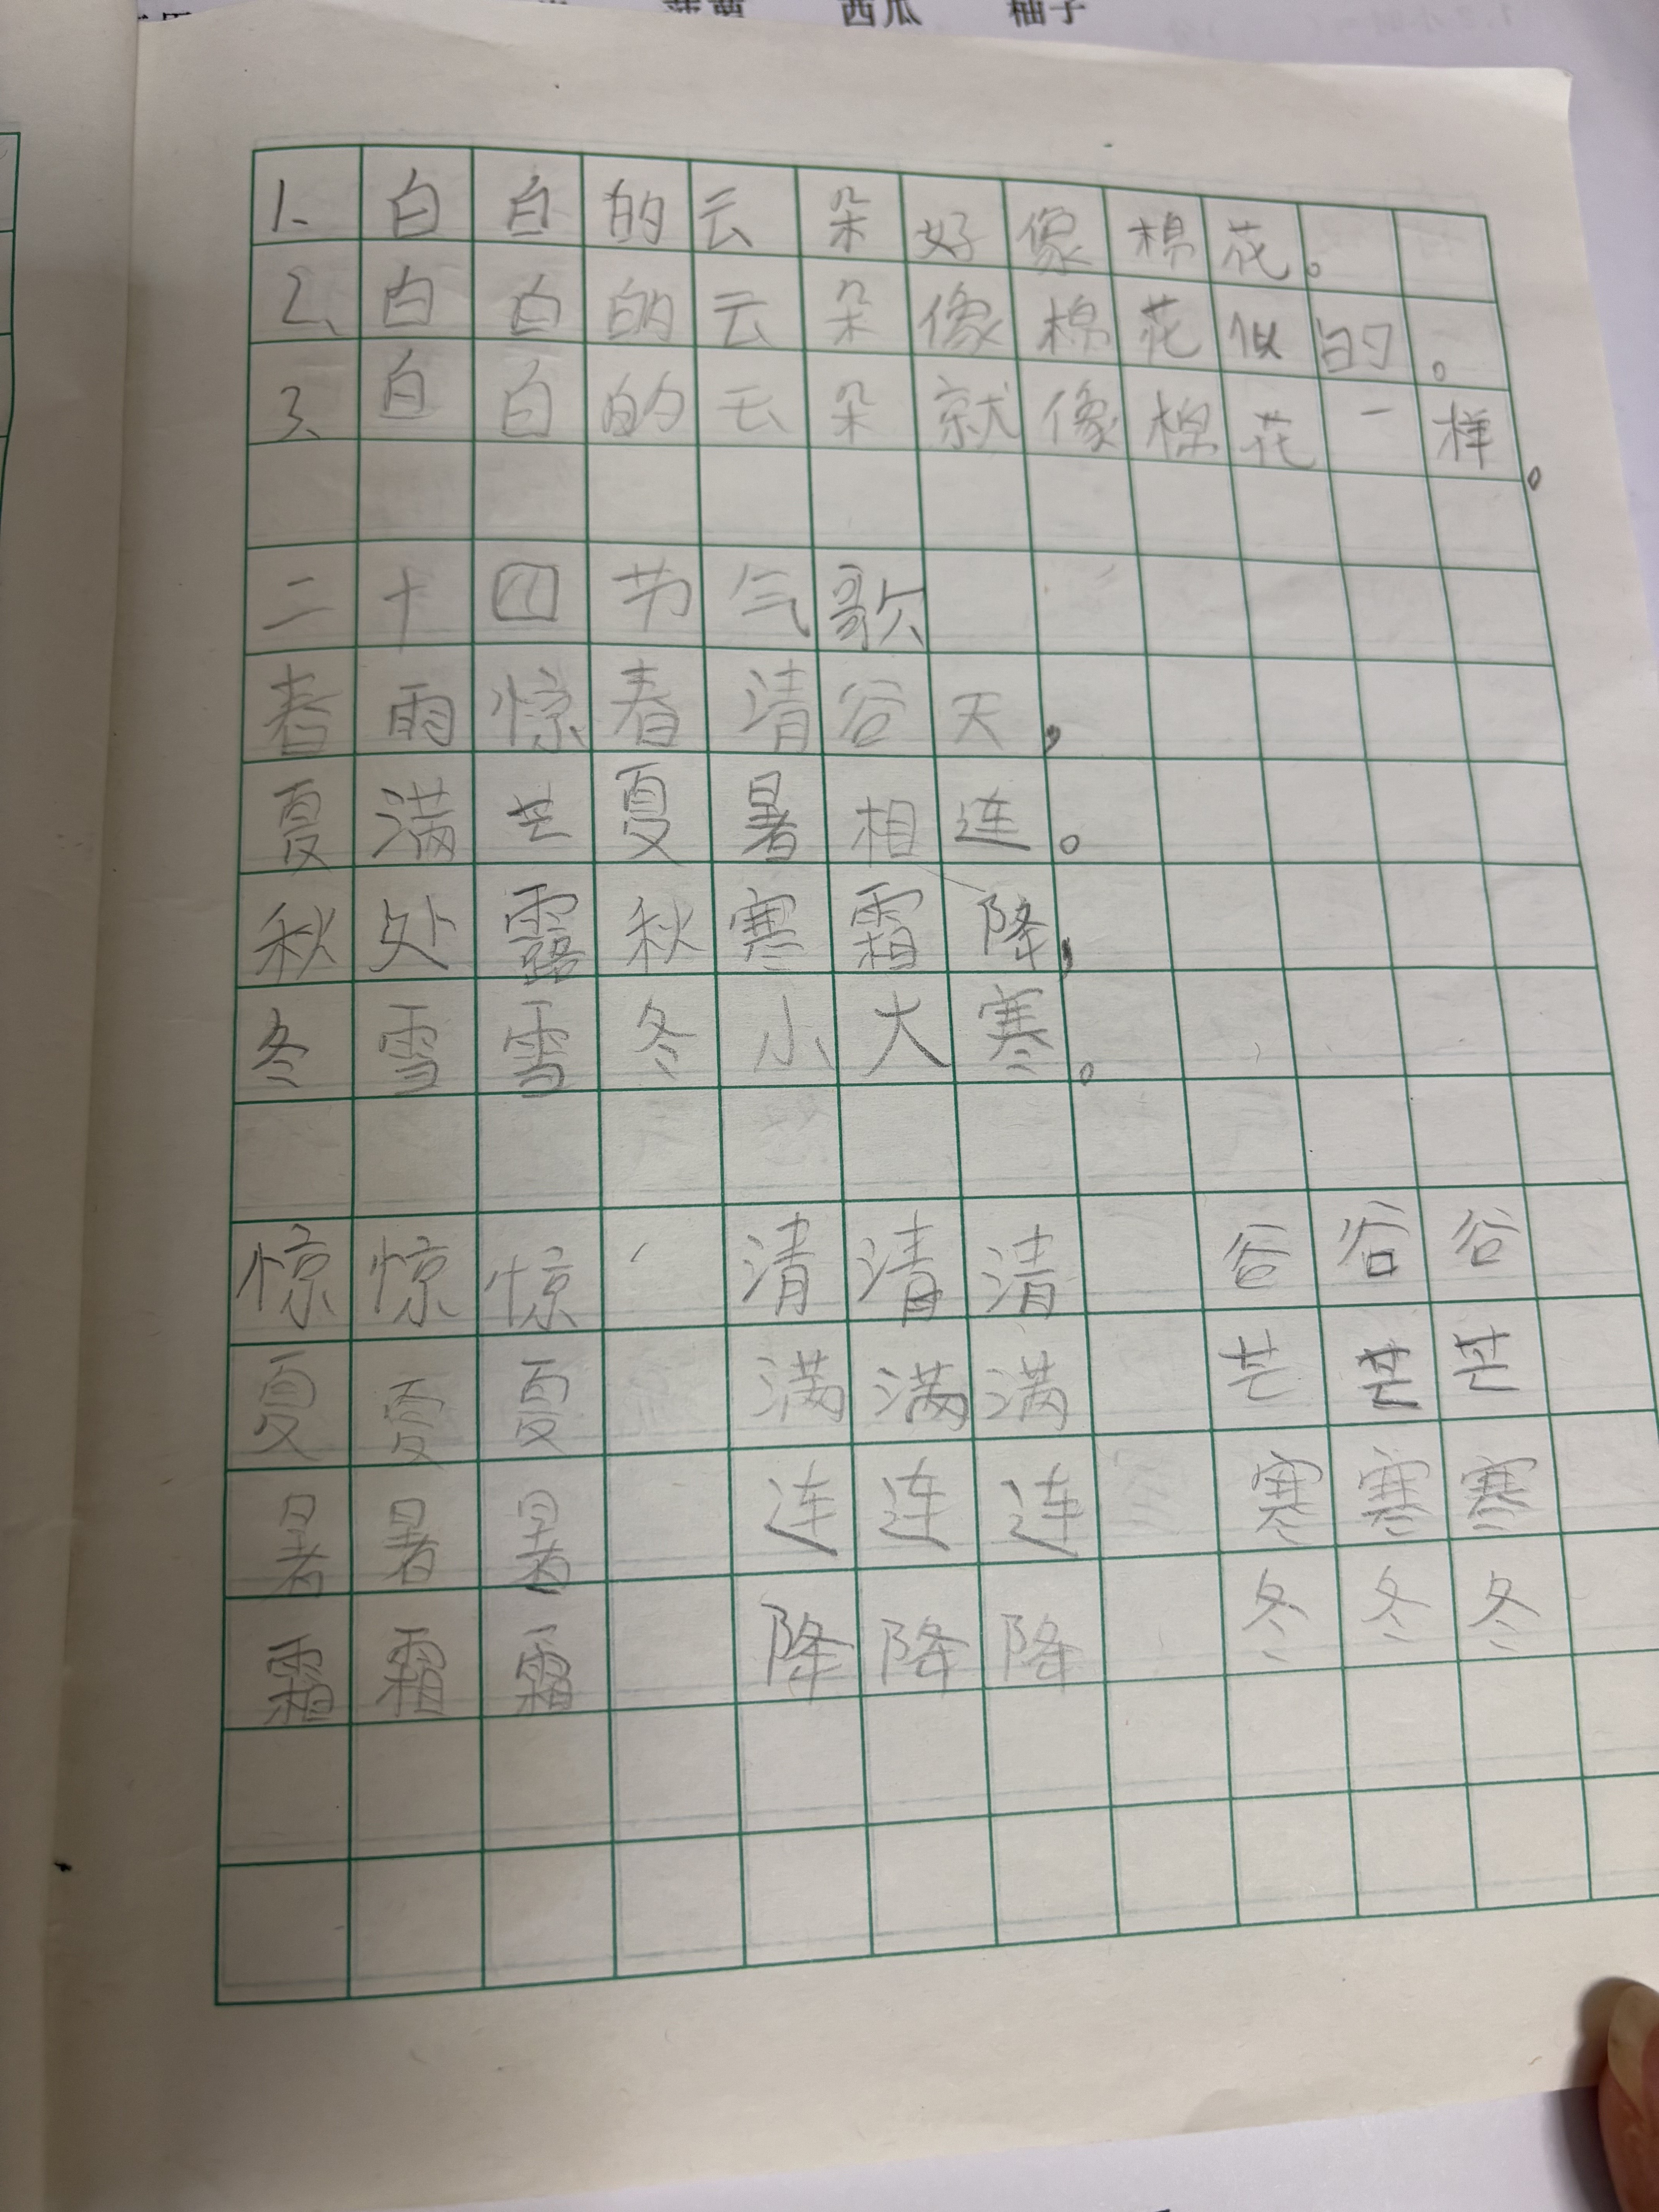 西瓜 柚子
1、白白的云朵好像棉花。
2、白白的云朵像棉花似的。
3、白白的云朵就像棉花一样。
二十四节气歌
春雨惊春清谷天，
夏满芒夏暑相连。
秋处露秋寒霜降，
冬雪雪冬小大寒。
惊惊惊 清清清 谷谷谷
夏夏夏 满满满 芒芒芒
暑暑暑 连连连 寒寒寒
霜霜霜 降降降 冬冬冬